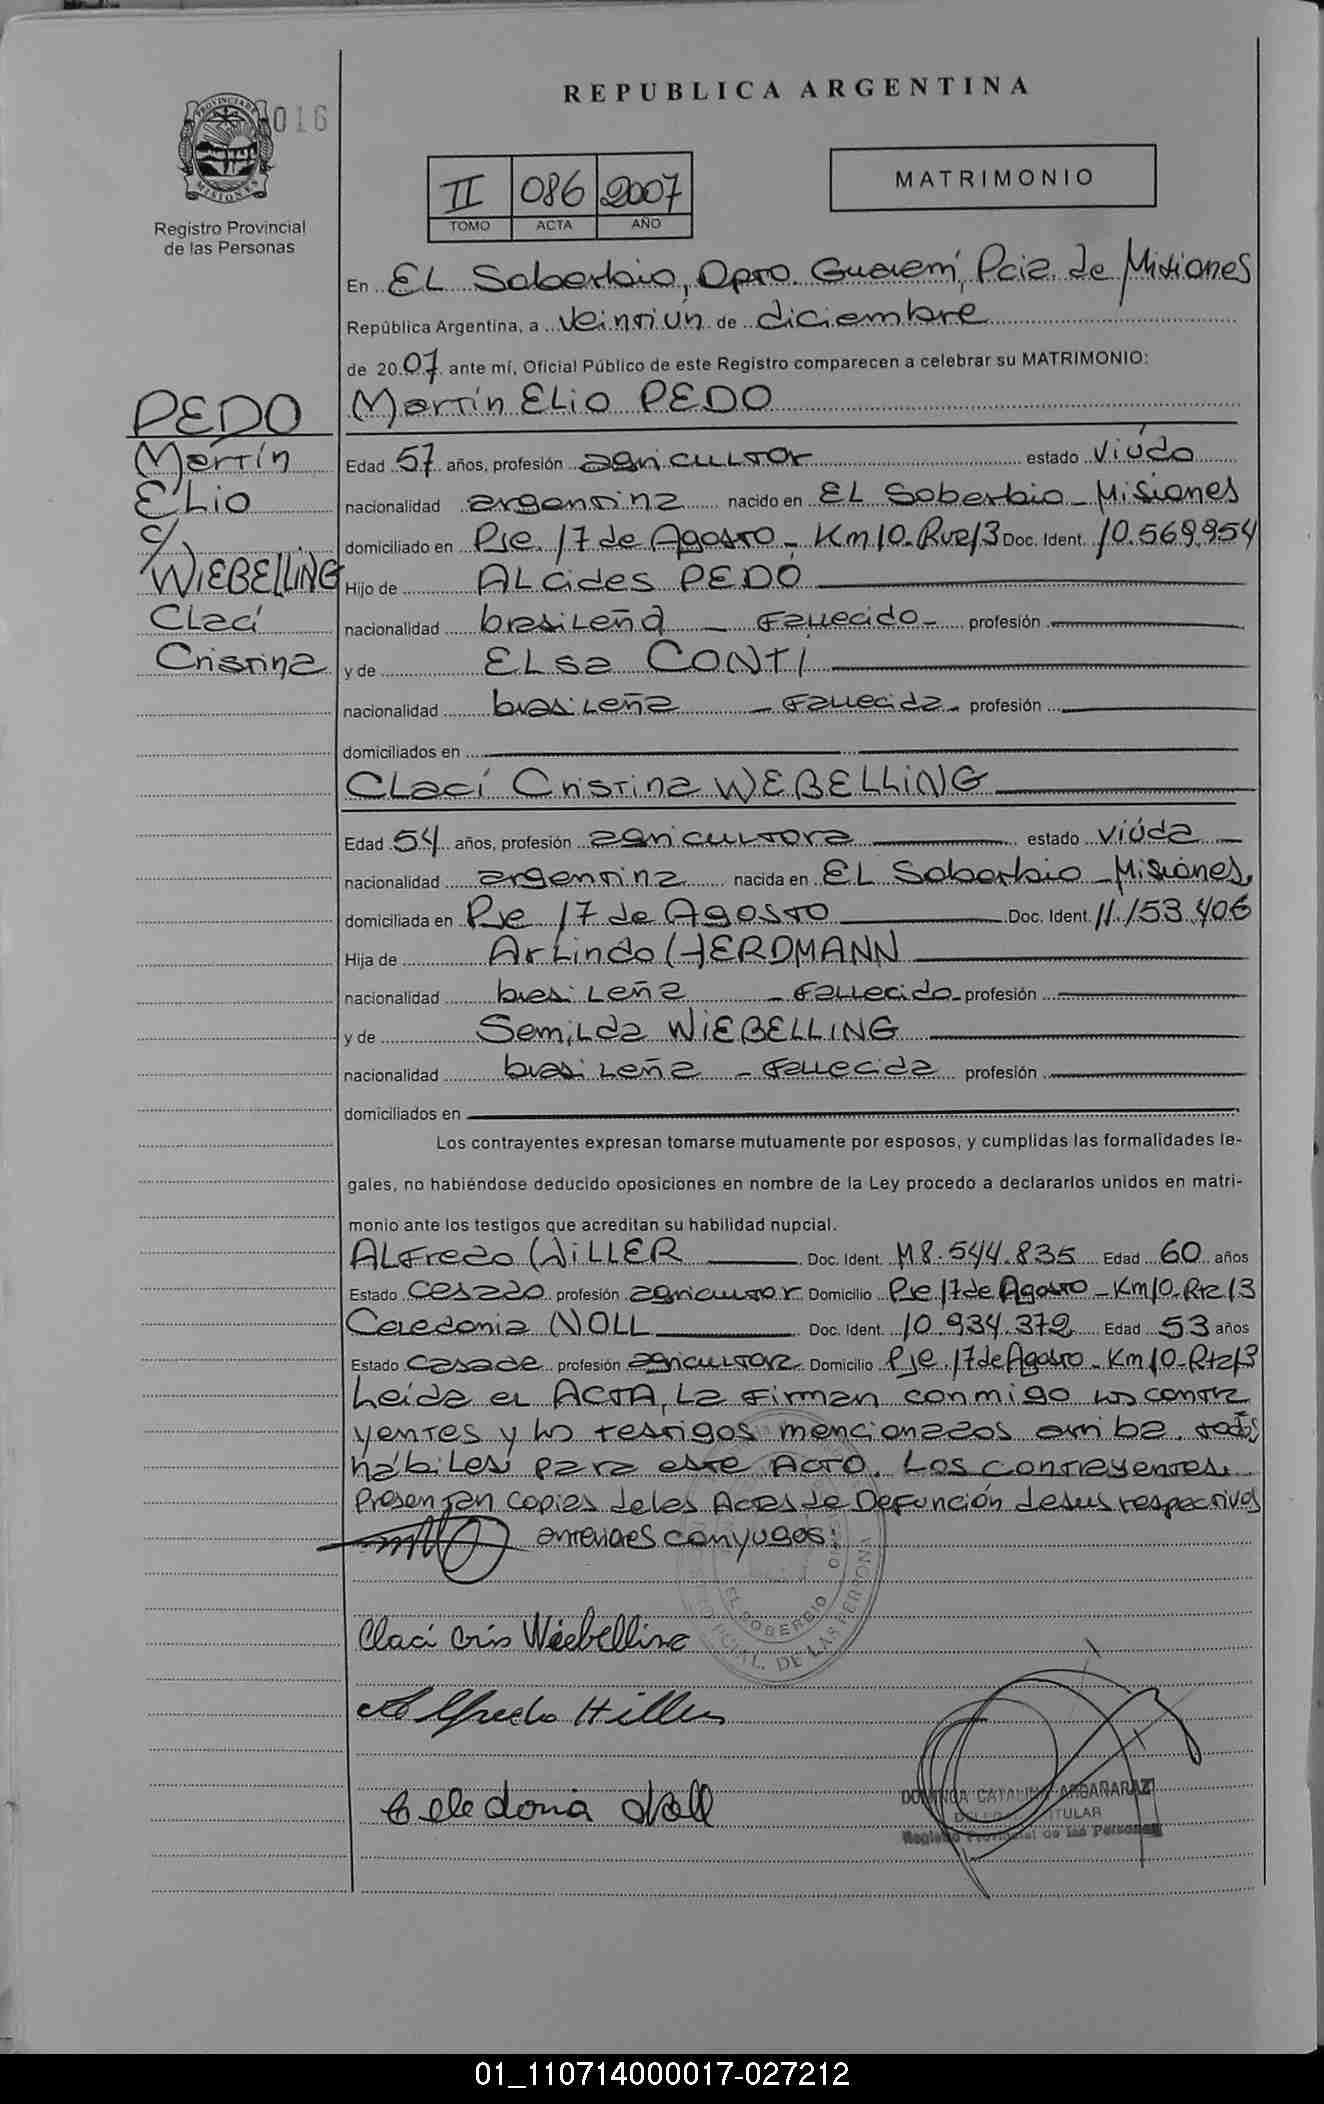 REPUBLICA ARGENTINA
016
PROVINCIA DE MISIONES
Registro Provincial
de las Personas
II 086 2007
TOMO ACTA AÑO
MATRIMONIO
En El Soberbio, Dpto. Guaraní, Pcia. de Misiones
República Argentina, a veintiún de diciembre
de 2007 ante mí, Oficial Público de este Registro comparecen a celebrar su MATRIMONIO:
Martín Elio PEDO
PEDO
Martín
Elio
c/
WIEBELLING
Clací
Cristina
Edad 57 años, profesión agricultor estado viúdo
nacionalidad argentina nacido en El Soberbio - Misiones
domiciliado en Pje. 17 de Agosto - Km 10 - Rta 13 Doc. Ident. 10.569.954
Hijo de Alcides PEDÓ
nacionalidad brasileña - fallecido - profesión
y de Elsa CONTI
nacionalidad brasileña - fallecida - profesión
domiciliados en
Clací Cristina WEBELLING
Edad 54 años, profesión agricultora estado viúda
nacionalidad argentina nacida en El Soberbio - Misiones,
domiciliada en Pje 17 de Agosto Doc. Ident. 11.153.406
Hija de Arlindo HERDMANN
nacionalidad brasileña - fallecido - profesión
y de Semilda WIEBELLING
nacionalidad brasileña - fallecida profesión
domiciliados en
Los contrayentes expresan tomarse mutuamente por esposos, y cumplidas las formalidades le-
gales, no habiéndose deducido oposiciones en nombre de la Ley procedo a declararlos unidos en matri-
monio ante los testigos que acreditan su habilidad nupcial.
Alfredo HILLER Doc. Ident. M8.544.835 Edad 60 años
Estado casado profesión agricultor Domicilio Pje 17 de Agosto - Km 10 - Rta 13
Celedonia NOLL Doc. Ident. 10.934.372 Edad 53 años
Estado casada profesión agricultora Domicilio Pje. 17 de Agosto - Km 10 - Rta 13
Leída el ACTA, la firman conmigo los contra
yentes y los testigos mencionados arriba, todos
hábiles para este Acto. Los contrayentes
Presentan copias de las Actas de Defunción de sus respectivos
anteriores conyuges:
EL SOBERBIO
PCIAL. DE LAS PERSONA
Claci Cris Wiebelling
Alfredo Hiller
Celedonia Noll
DOMINGA CATALINA ARGAÑARAZ
TITULAR
Registro Provincial de las Personas
01_110714000017-027212